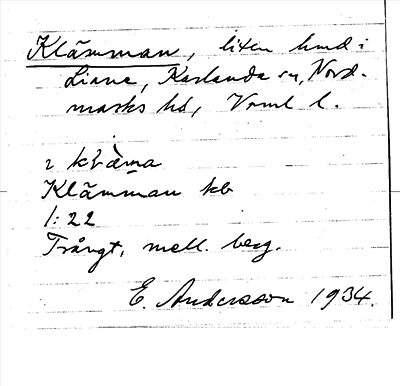 Klämman, liten lund i
Liane, Karlanda sn, Nord-
marks hd, Vrml l.
Klämman kb
1:22
Trångt, mell. berg.
E. Andersson 1934.